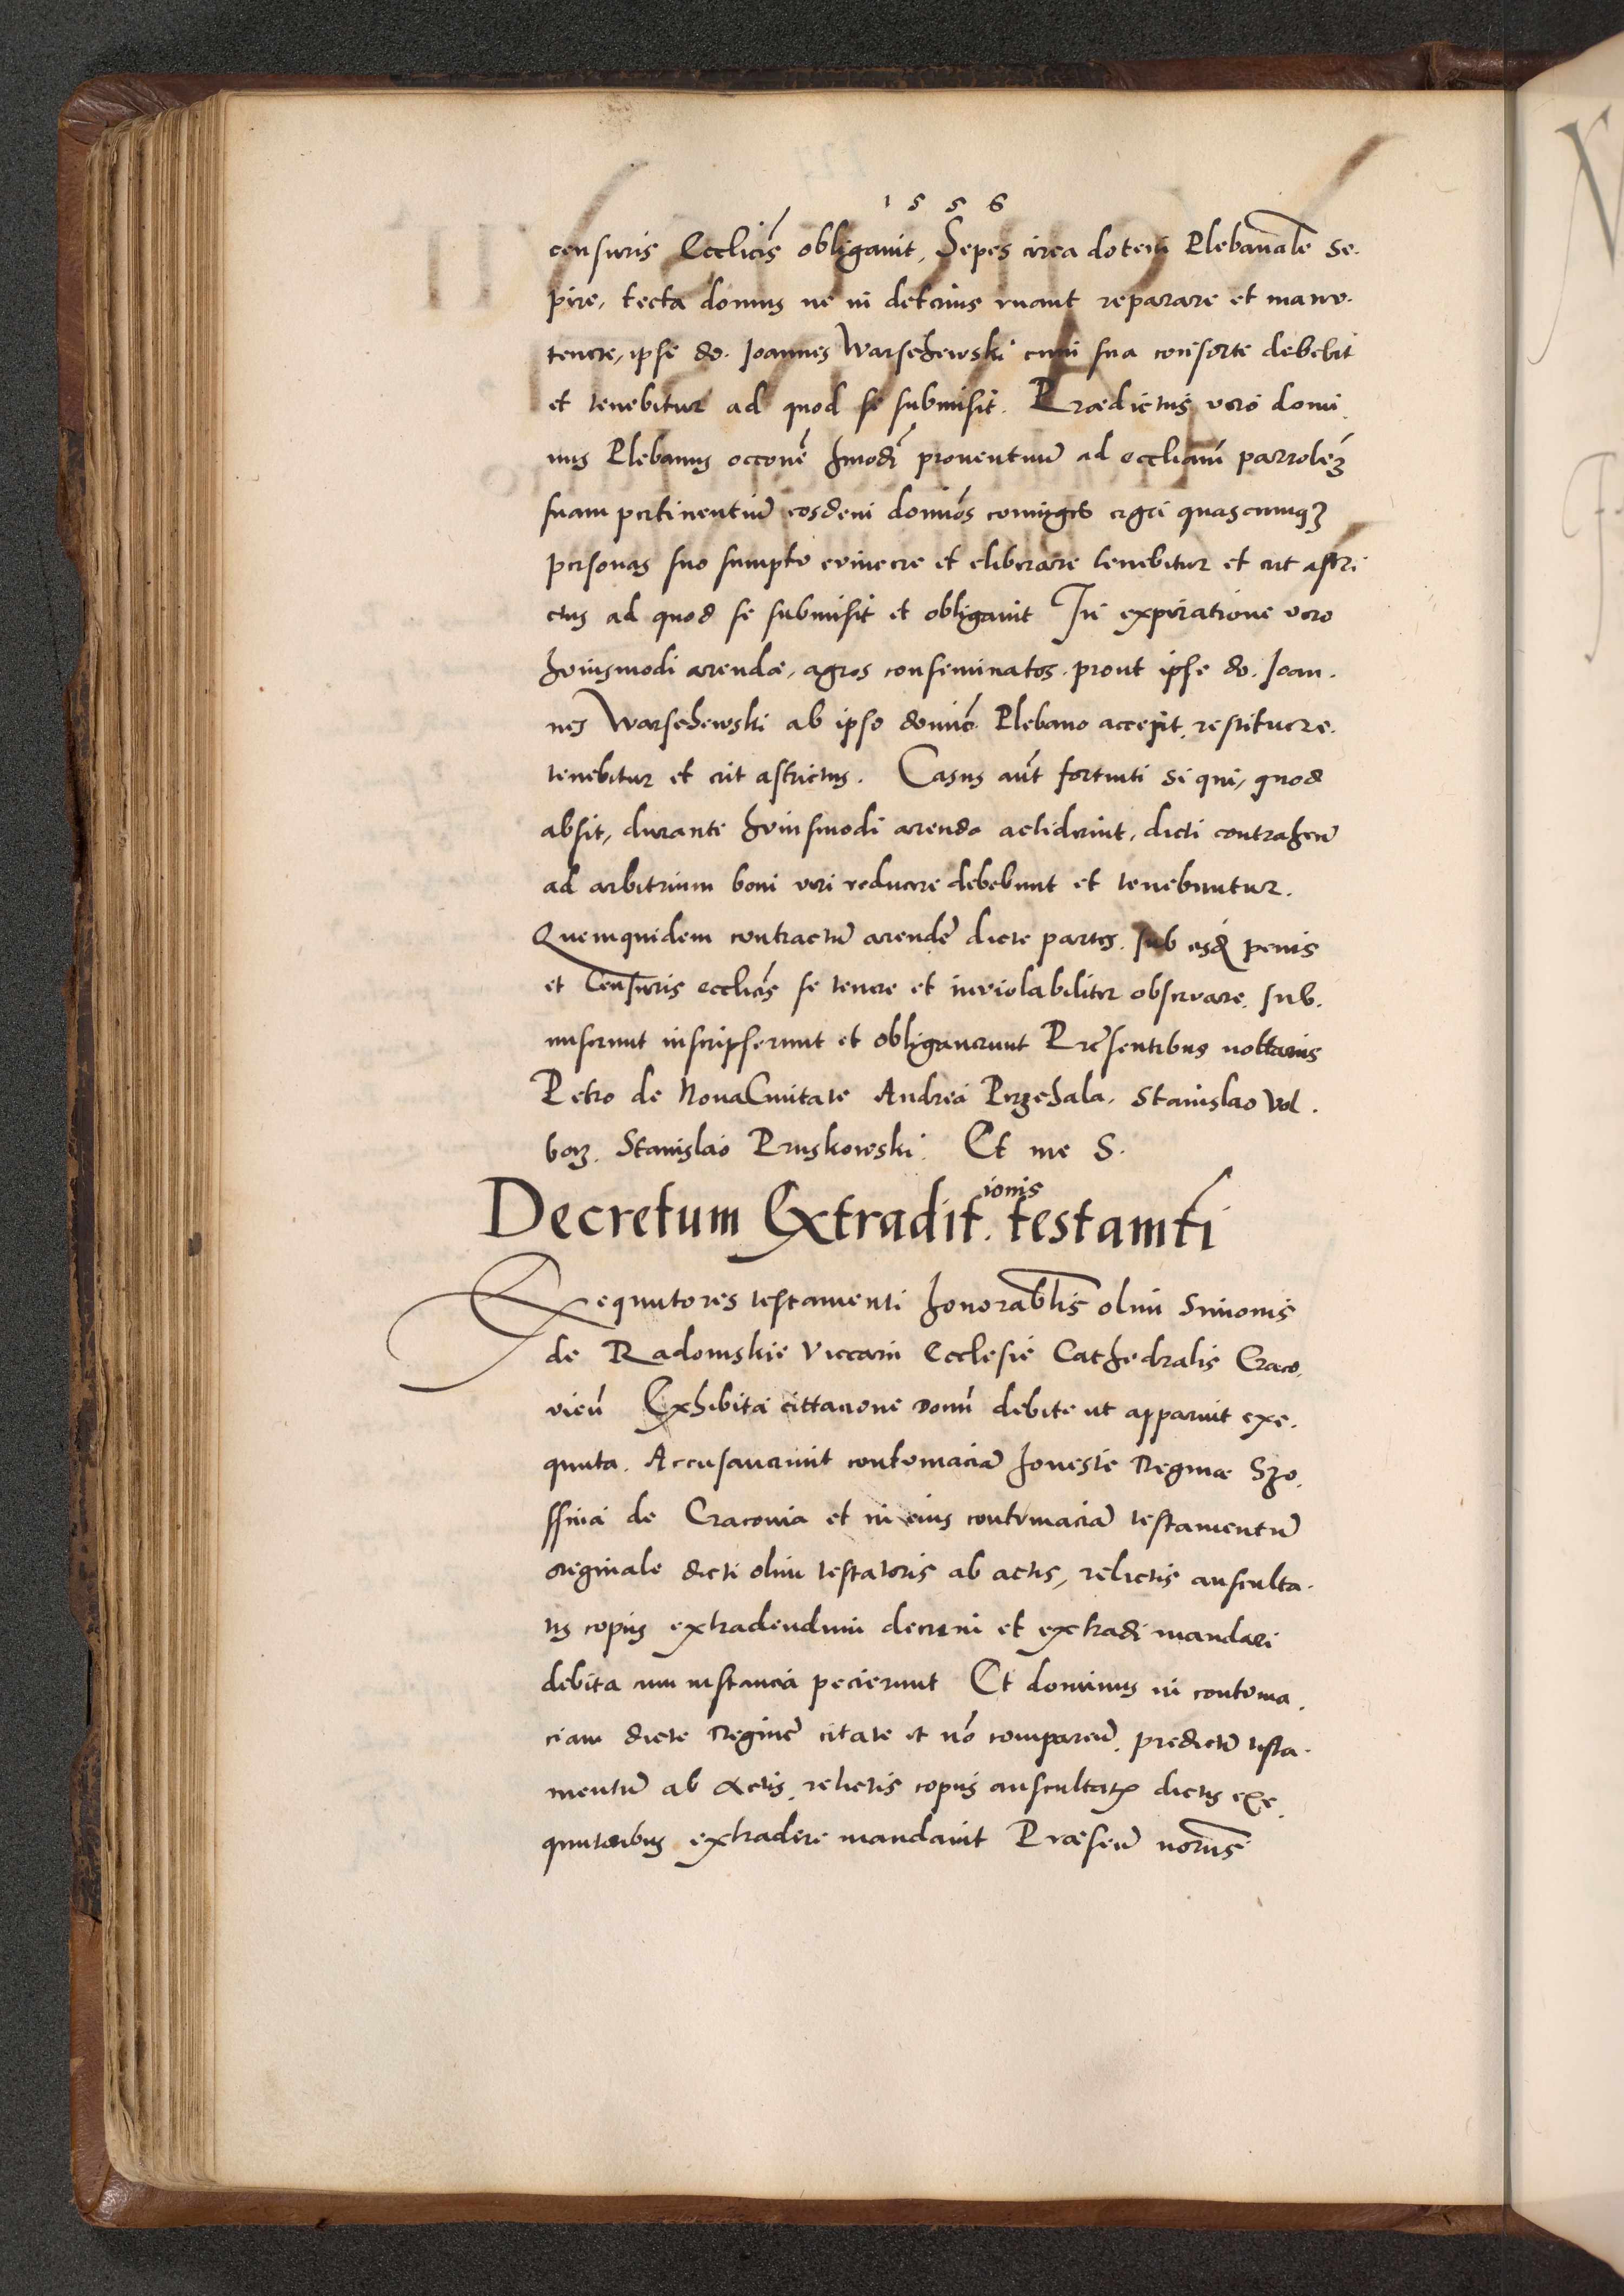 1556
censuris Eccl(icis) obligavit, Sepes circa dotem Plebanale se.
pire, tecta domus ne in deterius ruant reparare et manu.
tenere, ipse do. Joannes Warsehewski cum sua consorte debebit
et tenebitur ad quod se submisit. Praedictus vero domi.
nus Plebanus occone hmodi proventuum ad eccliam parrolez
suam pertinentium eosdem domos coniuges erga quascumq3
personas suo sumpto evincere et eliberare tenebitur et erit astri
ctus ad quod se submisit et obligavit In expiratione vero
huiusmodi arendæ, agros conseminatos, prout ipse do. Joan.
nes Warsehewski ab ipso domino Plebano accepit, restituere.
tenebitur et erit astrictus. Casus aut fortuiti si qui, quod
absit, durante huiusmodi arenda acciderint, dicti contrahen
ad arbitrium boni viri reducere debebunt et tenebuntur.
Quemquidem contractum arende dicte partes. sub eisd penis
et Censuris ecclicis se tenere et inviolabiliter observare. sub.
miserunt inscripserunt et obligaverunt Presentibus nottariis
Petro de Nova Civitate Andrea Przehala. Stanislao Vol.
borz. Stanislao Pruskowski. Et me S.
Decretum Extradit.ionis testamti
Exequutores testamenti honorablis olim Simonis
de Radomskie Viccarii Ecclesie Cathedralis Craco.
vien Exhibita cittatione Domi debite ut apparuit exe.
quuta. Accusaverunt contumaciam honeste Reginae Szo.
ssina de Cracovia et in eius contumaciam testamentum
originale dicti olim testatoris ab actis, relictis ausculta.
tis copiis extradendum decerni et extradi mandari
debita cum instancia pecierunt Et dominus in contuma.
ciam dicte Regine citate et no comparen. predictum testa.
mentum ab Actis. relictis copiis auscultatis dictis exe.
quutoribus extradere mandavit Praesen noriis